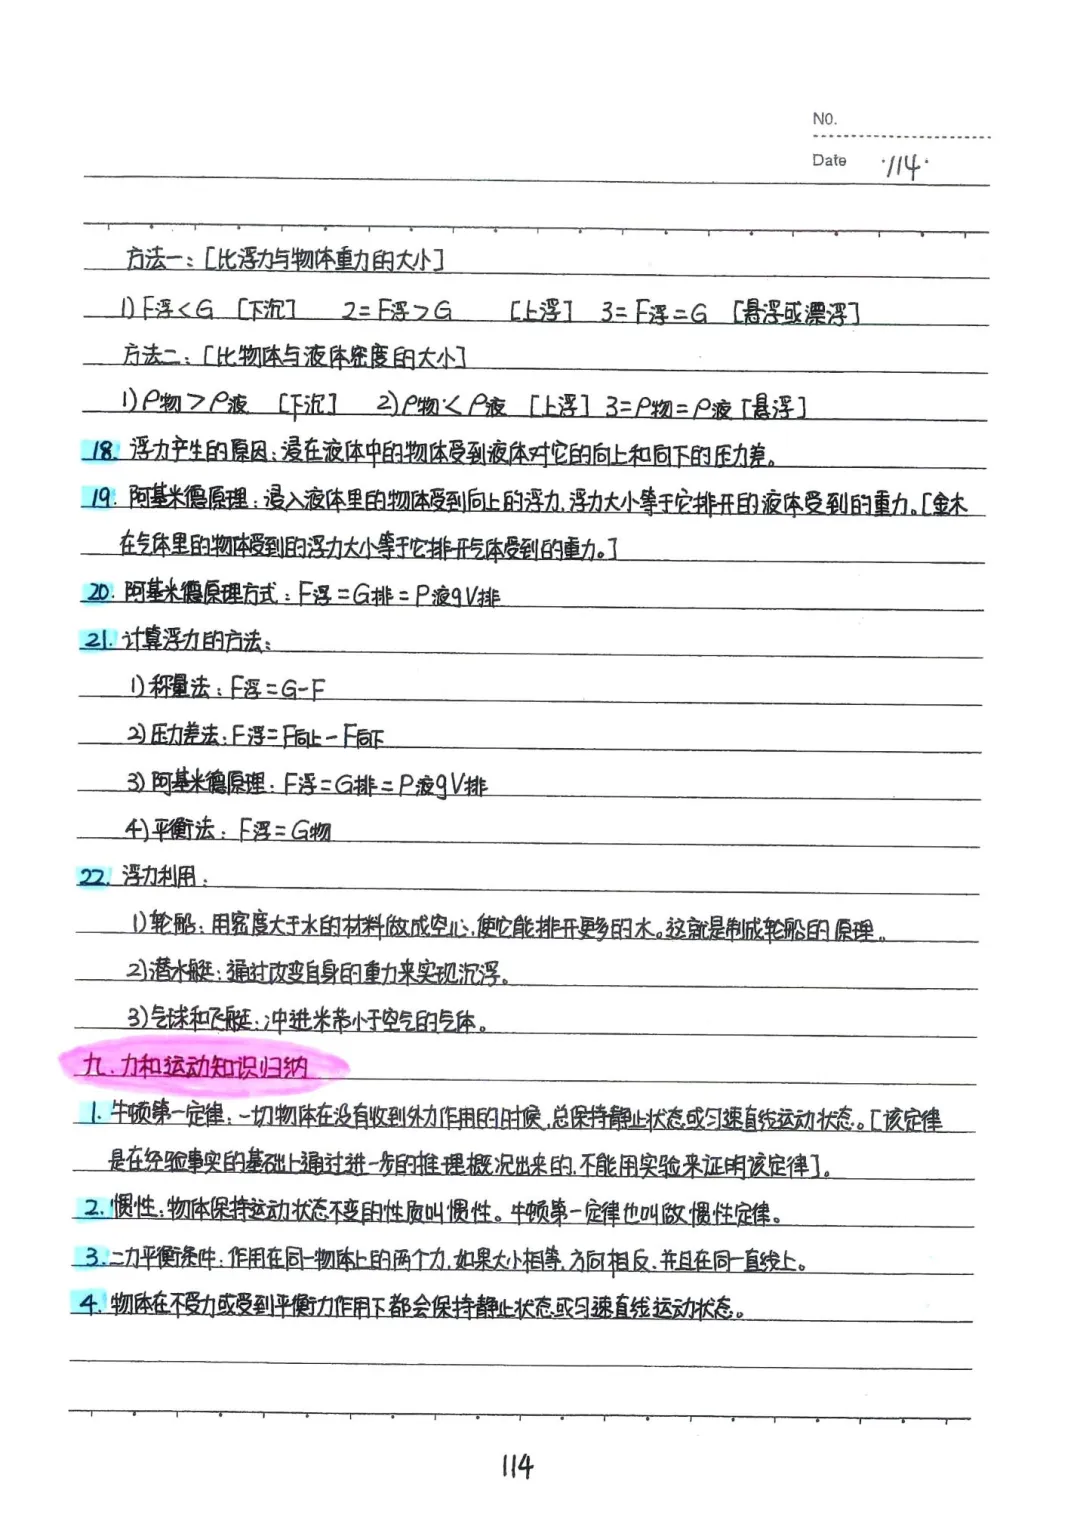 NO.
Date ·114·
方法一：[比浮力与物体重力的大小]
1) F浮<G [下沉] 2= F浮>G [上浮] 3= F浮=G [悬浮或漂浮]
方法二：[比物体与液体密度的大小]
1) ρ物>ρ液 [下沉] 2) ρ物<ρ液 [上浮] 3=ρ物=ρ液 [悬浮]
18. 浮力产生的原因：浸在液体中的物体受到液体对它的向上和向下的压力差。
19. 阿基米德原理：浸入液体里的物体受到向上的浮力,浮力大小等于它排开的液体受到的重力。[金木
在气体里的物体受到的浮力大小等于它排开气体受到的重力。]
20. 阿基米德原理方式：F浮=G排=P液gV排
21. 计算浮力的方法：
1) 秤量法：F浮=G-F
2) 压力差法：F浮=F向上-F向下
3) 阿基米德原理：F浮=G排=P液gV排
4) 平衡法：F浮=G物
22. 浮力利用：
1) 轮船：用密度大于水的材料做成空心,使它能排开更多的水。这就是制成轮船的原理。
2) 潜水艇：通过改变自身的重力来实现沉浮。
3) 气球和飞艇：冲进米带小于空气的气体。
九、力和运动知识归纳
1. 牛顿第一定律：一切物体在没有收到外力作用的时候,总保持静止状态或匀速直线运动状态。[该定律
是在经验事实的基础上通过进一步的推理概况出来的,不能用实验来证明该定律]。
2. 惯性：物体保持运动状态不变的性质叫惯性。牛顿第一定律也叫做惯性定律。
3. 二力平衡条件：作用在同一物体上的两个力,如果大小相等,方向相反,并且在同一直线上。
4. 物体在不受力或受到平衡力作用下都会保持静止状态或匀速直线运动状态。
114